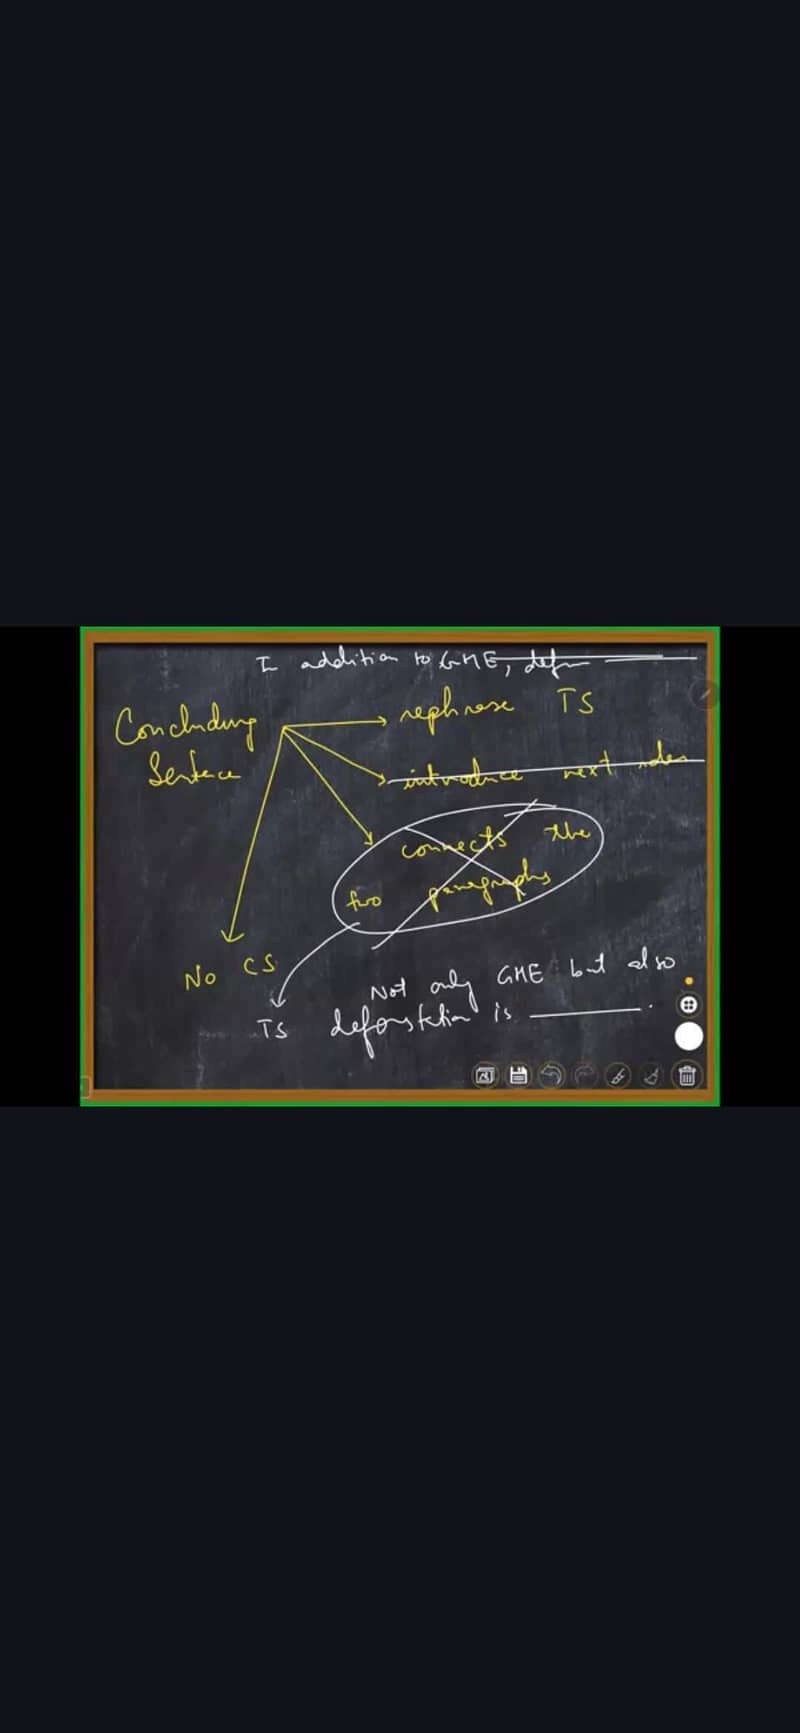 In addition to GHE, defor
Concluding
Sentence
rephrase TS
introduce next idea
connects the
two paragraphs
No CS
Not only GHE but also
TS deforstation is